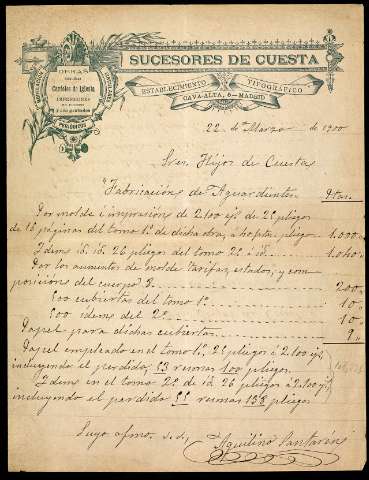 OBRAS
Carteles de Iglesia
IMPRESIONES
PERIÓDICOS
SUCESORES DE CUESTA
ESTABLECIMIENTO TIPOGRÁFICO
CAVA-ALTA, 5—MADRID
22 de Marzo de 1900
Sres. Hijos de Cuesta
"Fabricación de Aguardientes Ptas.
Por molde é impresión de 2.100 ejs de 25 pliegos
de 16 páginas del tomo 1º de dicha obra, á 40 ptas. pliego 1.000
Idem id. id. 26 pliegos del tomo 2º á id. 1.040
Por los aumentos de molde tarifas, estados, y com
posición del cuerpo 7 200
500 cubiertas del tomo 1º 10
500 idems del 2º 10
Papel para dichas cubiertas 9
Papel empleado en el tomo 1º, 25 pliegos á 2.100 ejs
incluyendo el perdido, 53 resmas 100 pliegos.
Idem en el tomo 2º de id. 26 pliegos á 2.100 ejs
incluyendo el perdido 55 resmas 158 pliegos
Suyo afmo. s.s.
Aquilino Santarén